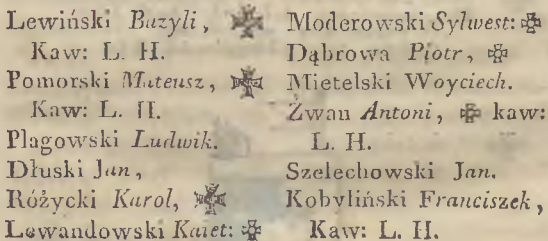 Lewiński Bazyli, ✠
Kaw: L. H.
Pomorski Mateusz, ✠
Kaw: L. H.
Plagowski Ludwik.
Dłuski Jan,
Różycki Karol, ✠
Lewandowski Kaiet: ✠
Moderowski Sylwest: ✠
Dąbrowa Piotr, ✠
Mietelski Woyciech.
Zwan Antoni, ✠ kaw:
L. H.
Szelechowski Jan.
Kobyliński Franciszek,
Kaw: L. H.